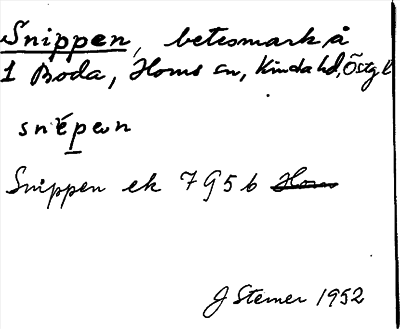 Snippen, betesmark å
1 Boda, Horns sn, Kinda hd, Östgl
snépen
Snippen ek 7 G 5 b Horns
J Sterner 1952